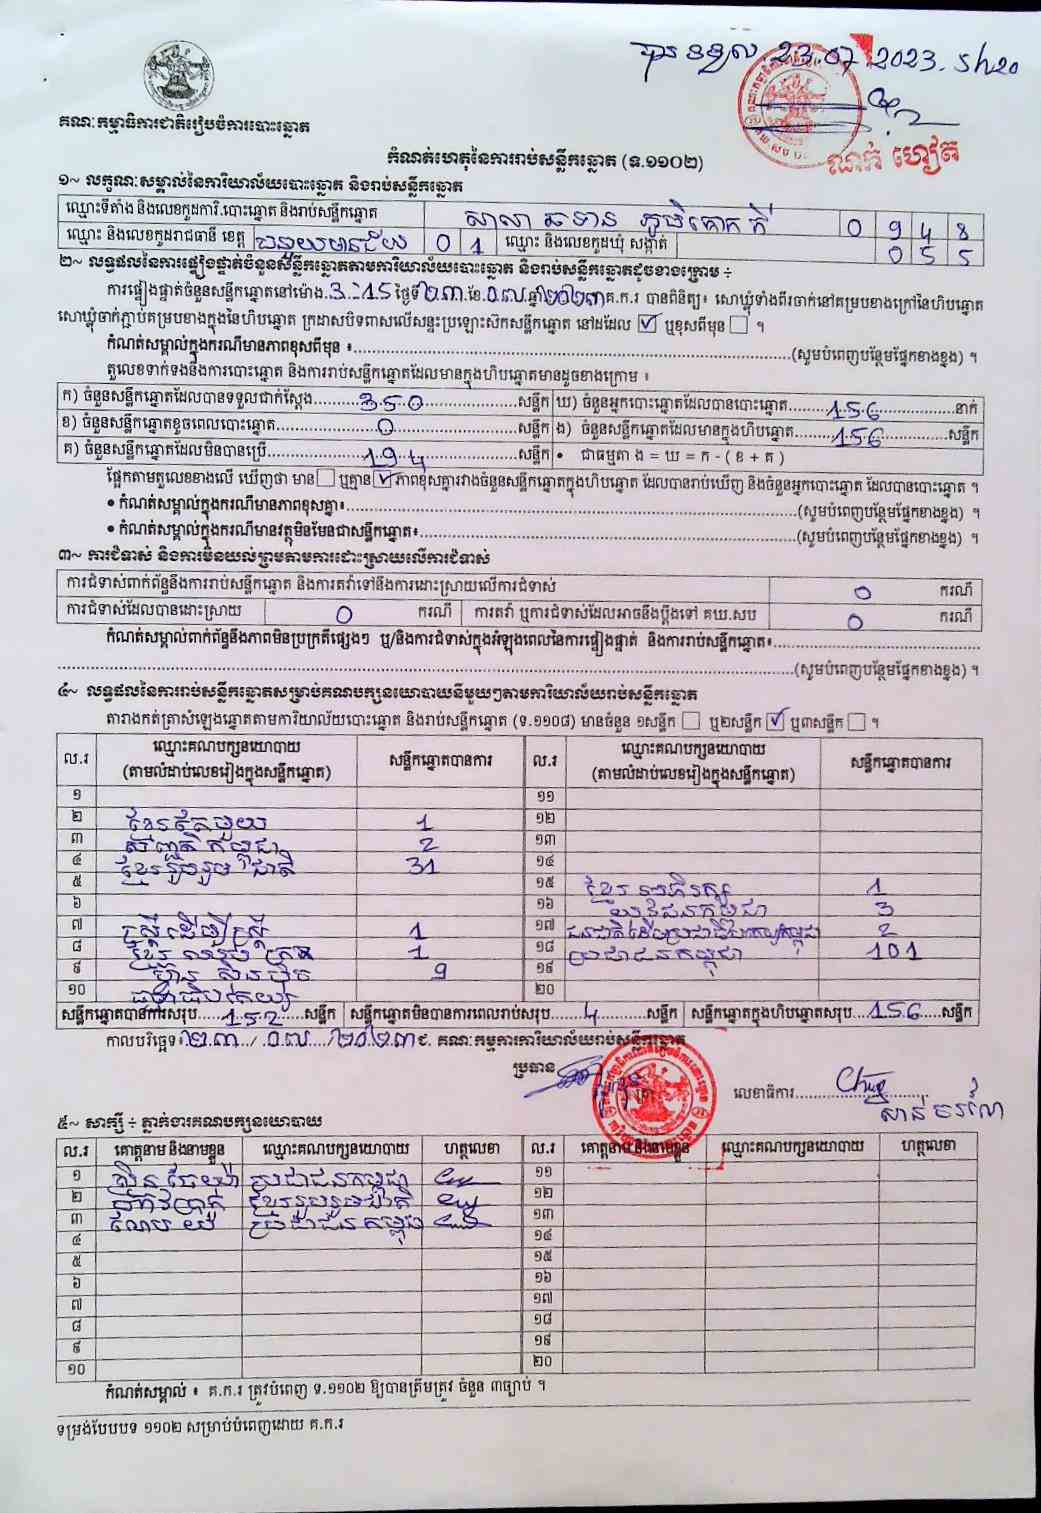 បានទទួល 23.07.2023. 5h20
គណៈកម្មាធិការជាតិរៀបចំការបោះឆ្នោត
ណាក់ ហឿត
កំណត់ហេតុនៃការរាប់សន្លឹកឆ្នោត (ទ.១១០២)
១~ លក្ខណៈសម្គាល់នៃការិយាល័យបោះឆ្នោត និងរាប់សន្លឹកឆ្នោត
ឈ្មោះទីតាំង និងលេខកូដការិ.បោះឆ្នោត និងរាប់សន្លឹកឆ្នោត សាលា ឆទាន ភូមិគោកគី 0 9 4 8
ឈ្មោះ និងលេខកូដរាជធានី ខេត្ត បន្ទាយមានជ័យ 0 1 ឈ្មោះ និងលេខកូដឃុំ សង្កាត់ 0 5 5
២~ លទ្ធផលនៃការផ្ទៀងផ្ទាត់ចំនួនសន្លឹកឆ្នោតតាមការិយាល័យបោះឆ្នោត និងរាប់សន្លឹកឆ្នោតដូចខាងក្រោម ÷
ការផ្ទៀងផ្ទាត់ចំនួនសន្លឹកឆ្នោតនៅម៉ោង.3:15 ថ្ងៃទី២៣.ខែ.០៧.ឆ្នាំ២០២៣គ.ក.រ បានពិនិត្យ៖ សោឃ្លុំទាំងពីរចាក់នៅគម្របខាងក្រៅនៃហិបឆ្នោត
សោឃ្លុំចាក់ភ្ជាប់គម្របខាងក្នុងនៃហិបឆ្នោត ក្រដាសបិទពាសលើសន្ទះប្រឡោះស៊កសន្លឹកឆ្នោត នៅដដែល ☑ ឬខុសពីមុន ☐ ។
កំណត់សម្គាល់ក្នុងករណីមានភាពខុសពីមុន ៖..........(សូមបំពេញបន្ថែមផ្នែកខាងខ្នង) ។
តួលេខទាក់ទងនឹងការបោះឆ្នោត និងការរាប់សន្លឹកឆ្នោតដែលមានក្នុងហិបឆ្នោតមានដូចខាងក្រោម ៖
ក) ចំនួនសន្លឹកឆ្នោតដែលបានទទួលជាក់ស្តែង..........350..........សន្លឹក ឃ) ចំនួនអ្នកបោះឆ្នោតដែលបានបោះឆ្នោត..........156..........នាក់
ខ) ចំនួនសន្លឹកឆ្នោតខូចពេលបោះឆ្នោត..........0..........សន្លឹក ង) ចំនួនសន្លឹកឆ្នោតដែលមានក្នុងហិបឆ្នោត..........156..........សន្លឹក
គ) ចំនួនសន្លឹកឆ្នោតដែលមិនបានប្រើ..........194..........សន្លឹក • ជាធម្មតា ង = ឃ = ក - ( ខ + គ )
ផ្អែកតាមតួលេខខាងលើ ឃើញថា មាន ☐ ឬគ្មាន ☑ ភាពខុសគ្នារវាងចំនួនសន្លឹកឆ្នោតក្នុងហិបឆ្នោត ដែលបានរាប់ឃើញ និងចំនួនអ្នកបោះឆ្នោត ដែលបានបោះឆ្នោត ។
• កំណត់សម្គាល់ក្នុងករណីមានភាពខុសគ្នា៖..........(សូមបំពេញបន្ថែមផ្នែកខាងខ្នង) ។
• កំណត់សម្គាល់ក្នុងករណីមានវត្ថុមិនមែនជាសន្លឹកឆ្នោត៖..........(សូមបំពេញបន្ថែមផ្នែកខាងខ្នង) ។
៣~ ការជំទាស់ និងការមិនយល់ព្រមតាមការដោះស្រាយលើការជំទាស់
ការជំទាស់ពាក់ព័ន្ធនឹងការរាប់សន្លឹកឆ្នោត និងការតវ៉ាទៅនឹងការដោះស្រាយលើការជំទាស់ 0 ករណី
ការជំទាស់ដែលបានដោះស្រាយ 0 ករណី ការតវ៉ា ឬការជំទាស់ដែលអាចនឹងប្តឹងទៅ គឃ.សប 0 ករណី
កំណត់សម្គាល់ពាក់ព័ន្ធនឹងភាពមិនប្រក្រតីផ្សេងៗ ឬ/និងការជំទាស់ក្នុងអំឡុងពេលនៃការផ្ទៀងផ្ទាត់ និងការរាប់សន្លឹកឆ្នោត៖..........
..........(សូមបំពេញបន្ថែមផ្នែកខាងខ្នង) ។
៤~ លទ្ធផលនៃការរាប់សន្លឹកឆ្នោតសម្រាប់គណបក្សនយោបាយនីមួយៗតាមការិយាល័យរាប់សន្លឹកឆ្នោត
តារាងកត់ត្រាសំឡេងឆ្នោតតាមការិយាល័យបោះឆ្នោត និងរាប់សន្លឹកឆ្នោត (ទ.១១០៨) មានចំនួន ១សន្លឹក ☐ ឬ២សន្លឹក ☑ ឬ៣សន្លឹក ☐ ។
ល.រ ឈ្មោះគណបក្សនយោបាយ (តាមលំដាប់លេខរៀងក្នុងសន្លឹកឆ្នោត) សន្លឹកឆ្នោតបានការ ល.រ ឈ្មោះគណបក្សនយោបាយ (តាមលំដាប់លេខរៀងក្នុងសន្លឹកឆ្នោត) សន្លឹកឆ្នោតបានការ
១ ១១
២ ខ្មែរតែមួយ 1 ១២
៣ សញ្ជាតិកម្ពុជា 2 ១៣
៤ ខ្មែររួបរួមជាតិ 31 ១៤
៥ ១៥ ខ្មែរអភិរក្ស 1
៦ ១៦ យុវជនកម្ពុជា 3
៧ ស្ត្រីដើម្បីស្ត្រី 1 ១៧ ជនជាតិដើមប្រជាធិបតេយ្យកម្ពុជា 2
៨ ខ្មែរ 1 ១៨ ប្រជាជនកម្ពុជា 101
៩ ហ៊្វុនស៊ិនប៉ិច 9 ១៩
១០ ធម្មាធិបតេយ្យ ២០
សន្លឹកឆ្នោតបានការសរុប.....152.....សន្លឹក សន្លឹកឆ្នោតមិនបានការពេលរាប់សរុប.....4.....សន្លឹក សន្លឹកឆ្នោតក្នុងហិបឆ្នោតសរុប...156....សន្លឹក
កាលបរិច្ឆេទ៖២៣../..០៧.../២០២៣ គណៈកម្មការការិយាល័យរាប់សន្លឹកឆ្នោត
ប្រធាន
លេខាធិការ..........
៥~ សាក្សី ÷ ភ្នាក់ងារគណបក្សនយោបាយ
ល.រ គោត្តនាម និងនាមខ្លួន ឈ្មោះគណបក្សនយោបាយ ហត្ថលេខា ល.រ គោត្តនាម និងនាមខ្លួន ឈ្មោះគណបក្សនយោបាយ ហត្ថលេខា
១ ប្រជាជនកម្ពុជា ១១
២ ខ្មែររួបរួមជាតិ ១២
៣ ប្រជាជនកម្ពុជា ១៣
៤ ១៤
៥ ១៥
៦ ១៦
៧ ១៧
៨ ១៨
៩ ១៩
១០ ២០
កំណត់សម្គាល់ ៖ គ.ក.រ ត្រូវបំពេញ ទ.១១០២ ឱ្យបានត្រឹមត្រូវ ចំនួន ៣ច្បាប់ ។
ទម្រង់បែបបទ ១១០២ សម្រាប់បំពេញដោយ គ.ក.រ